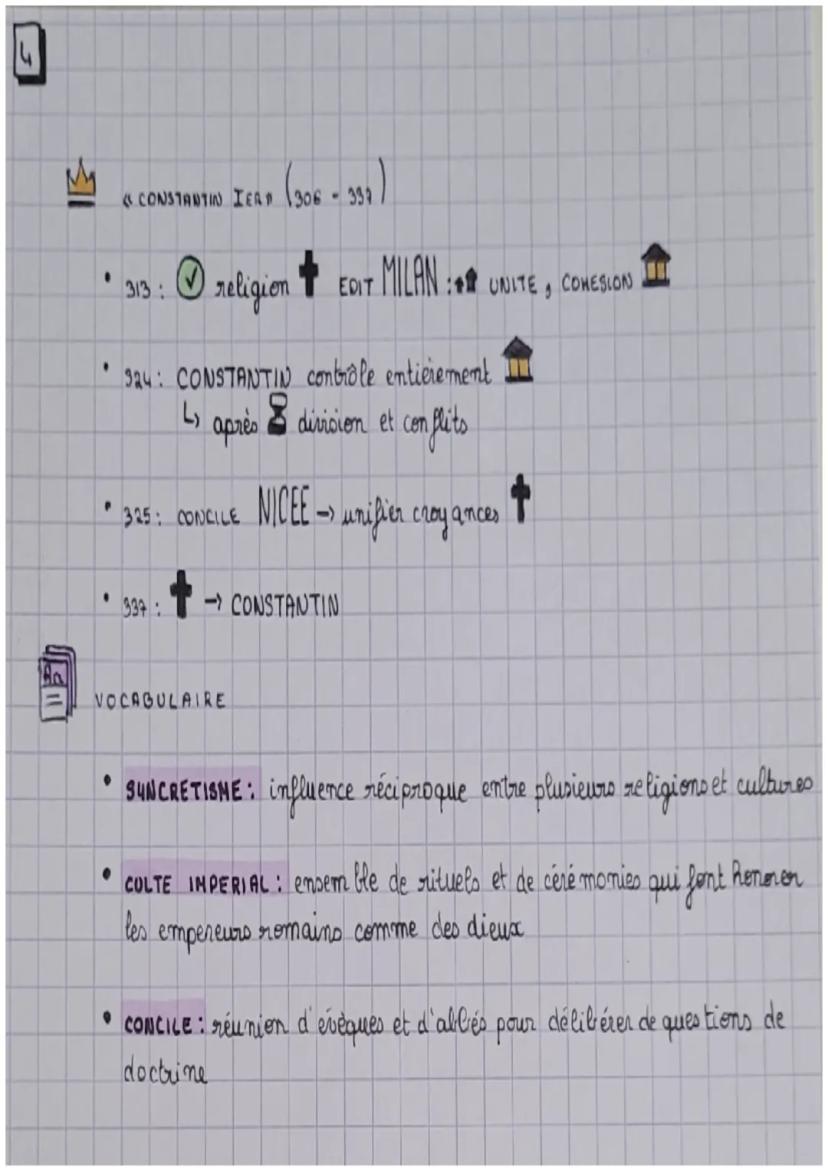 4
« CONSTANTIN IER » (306 - 337)
• 313 : religion EDIT MILAN : UNITE, COHESION
• 324 : CONSTANTIN contrôle entièrement
↳ après division et conflits
• 325 : CONCILE NICEE → unifier croyances
• 337 : → CONSTANTIN
An
VOCABULAIRE
• SYNCRETISME : influence réciproque entre plusieurs religions et cultures
• CULTE IMPERIAL : ensemble de rituels et de cérémonies qui font honorer
les empereurs romains comme des dieux
• CONCILE : réunion d'évèques et d'abbés pour délibérer de questions de
doctrine